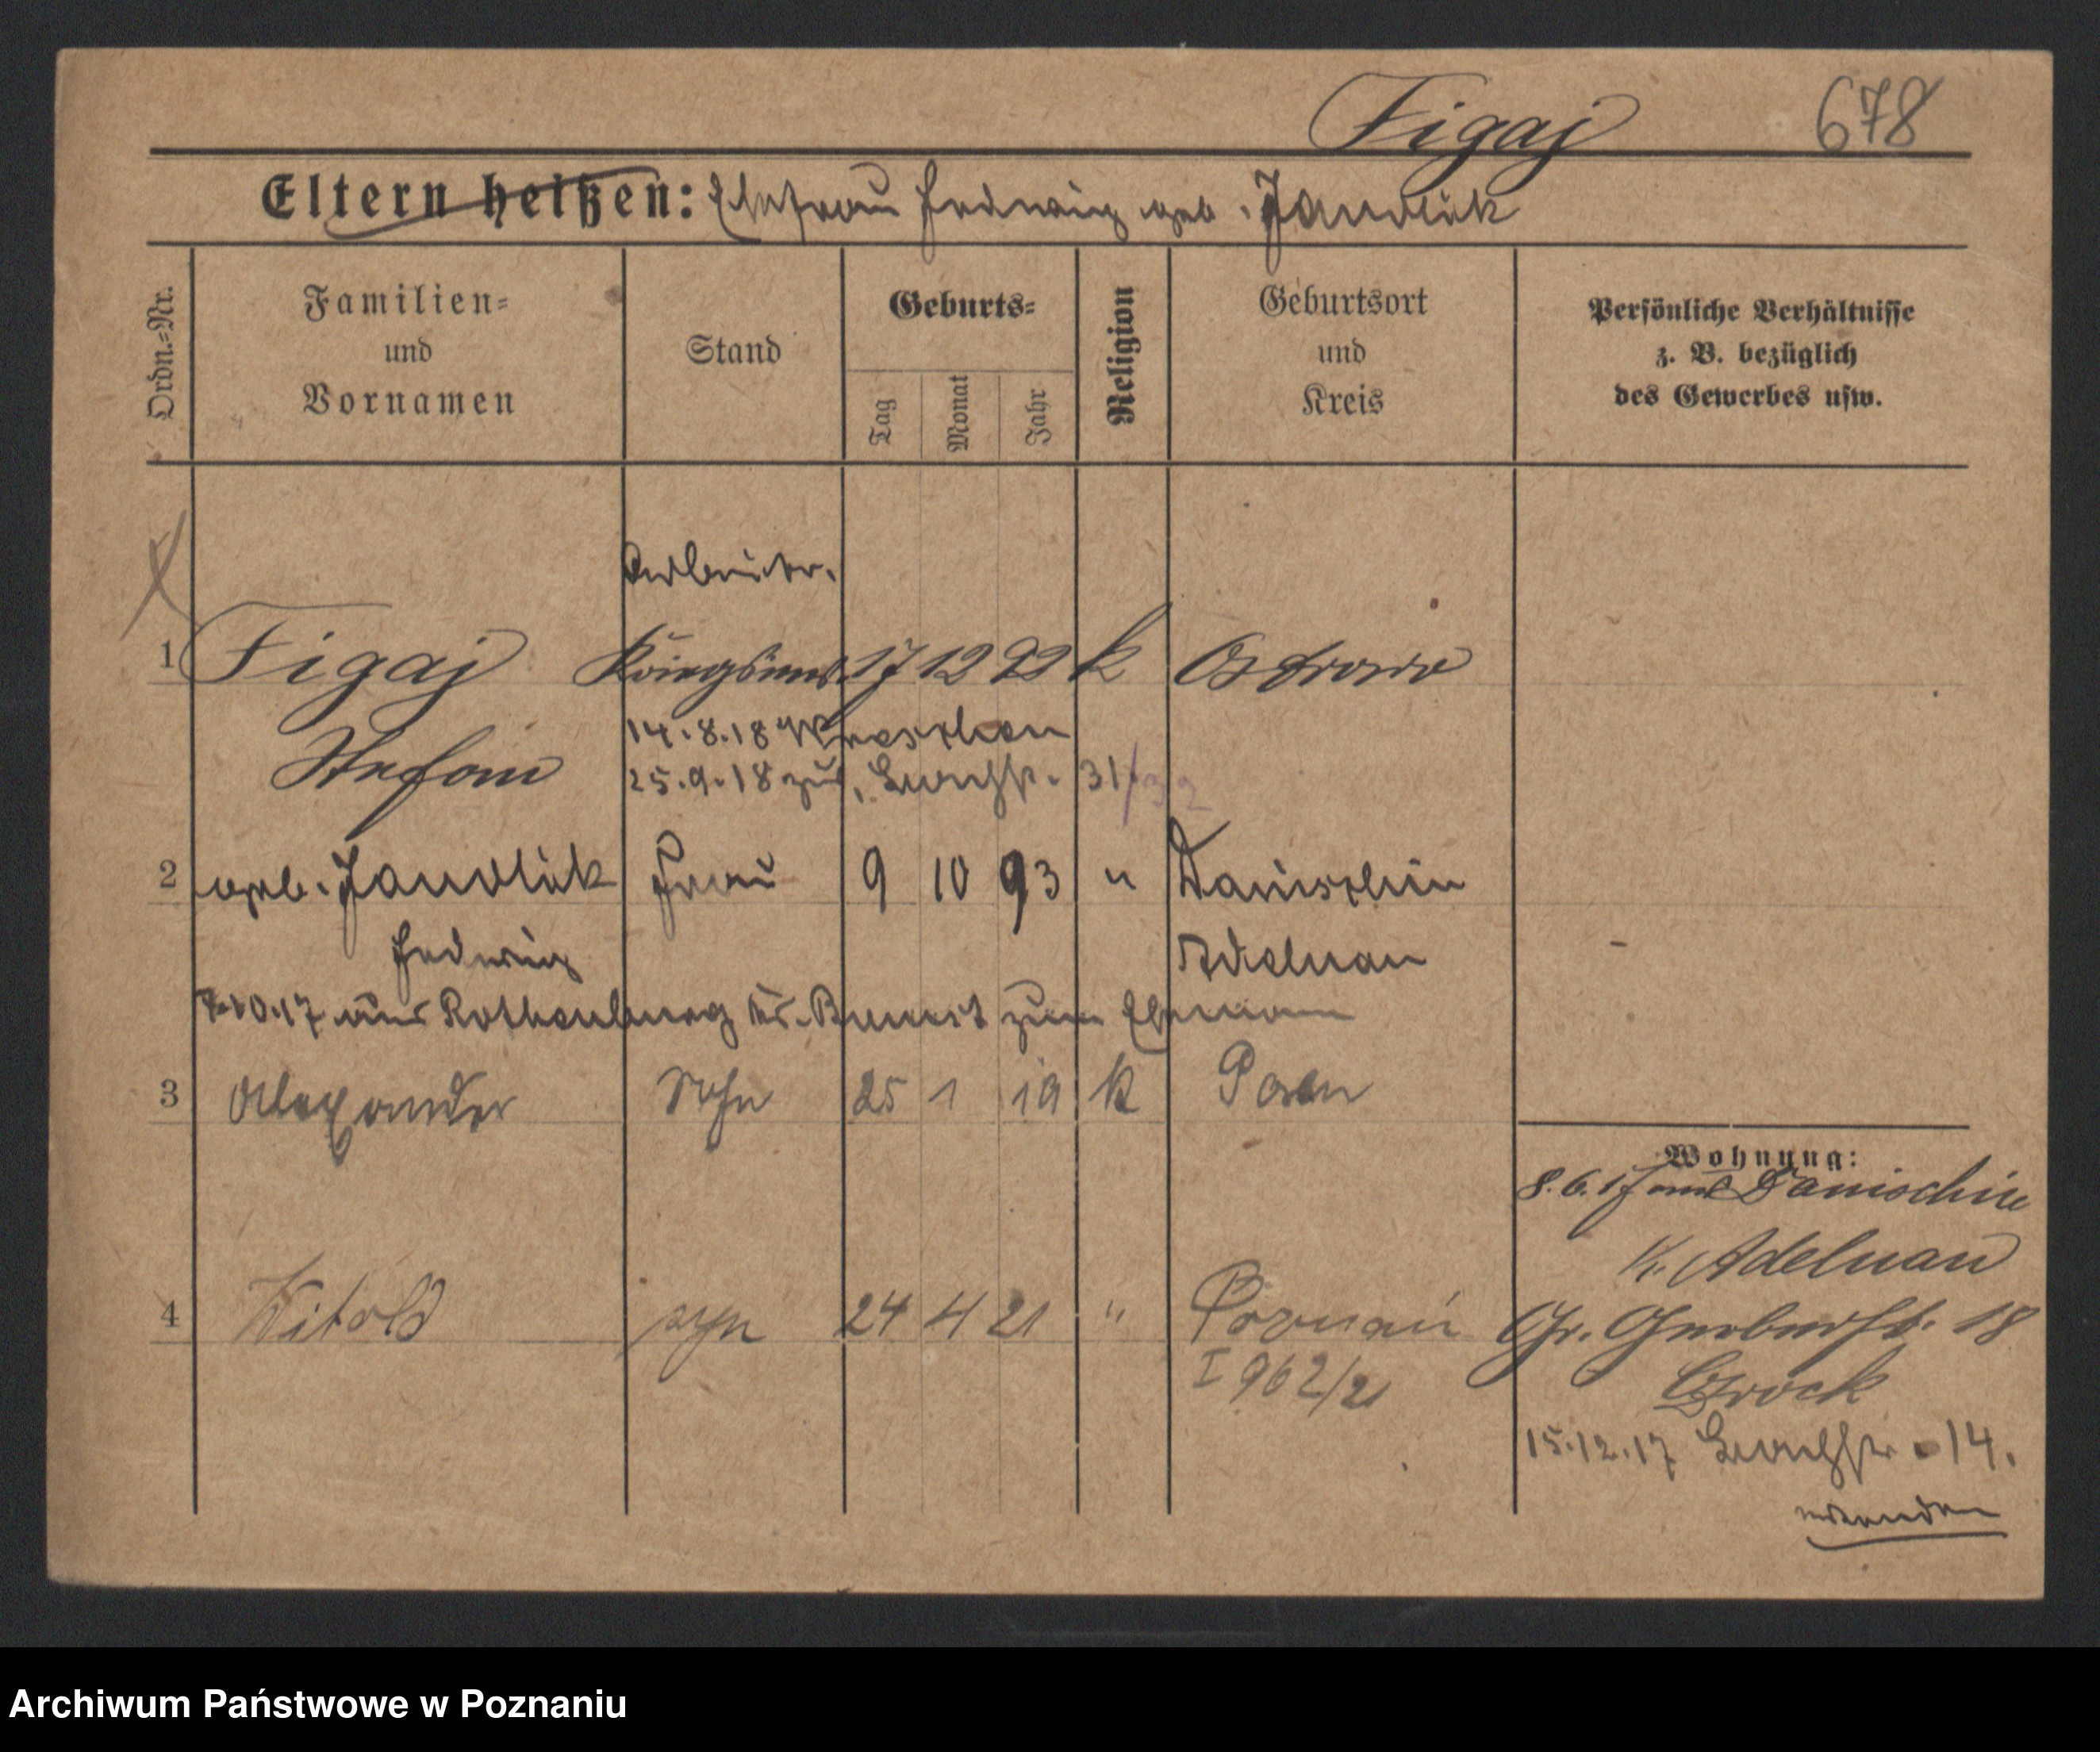 Figaj 678
Eltern heißen: Ehefrau Hedwig geb. Jandlik
Ordn.-Nr.
Familien-
und
Vornamen
Stand
Geburts-
Tag
Monat
Jahr
Religion
Geburtsort
und
Kreis
Persönliche Verhältnisse
z. B. bezüglich
des Gewerbes usw.
Arbeiter.
1 Figaj 17 12 92 k Ostrowo
Stefan
14.8.18 Wreschen
25.9.18 zur. 31
2 geb. Jandlik Frau 9 10 93 " Danischin
Hedwig Adelnau
7.10.17 aus Rothenburg Kr. Bomst zum Ehemann
3 Alexander Sohn 25 1 19 k Posen
Wohnung:
8.6.17 aus Danischin
K. Adelnau
4 Witold syn 24 4 21 " Poznań
Gr. Gerberstr. 18
I 962/21
15.12.17 14.
Archiwum Państwowe w Poznaniu